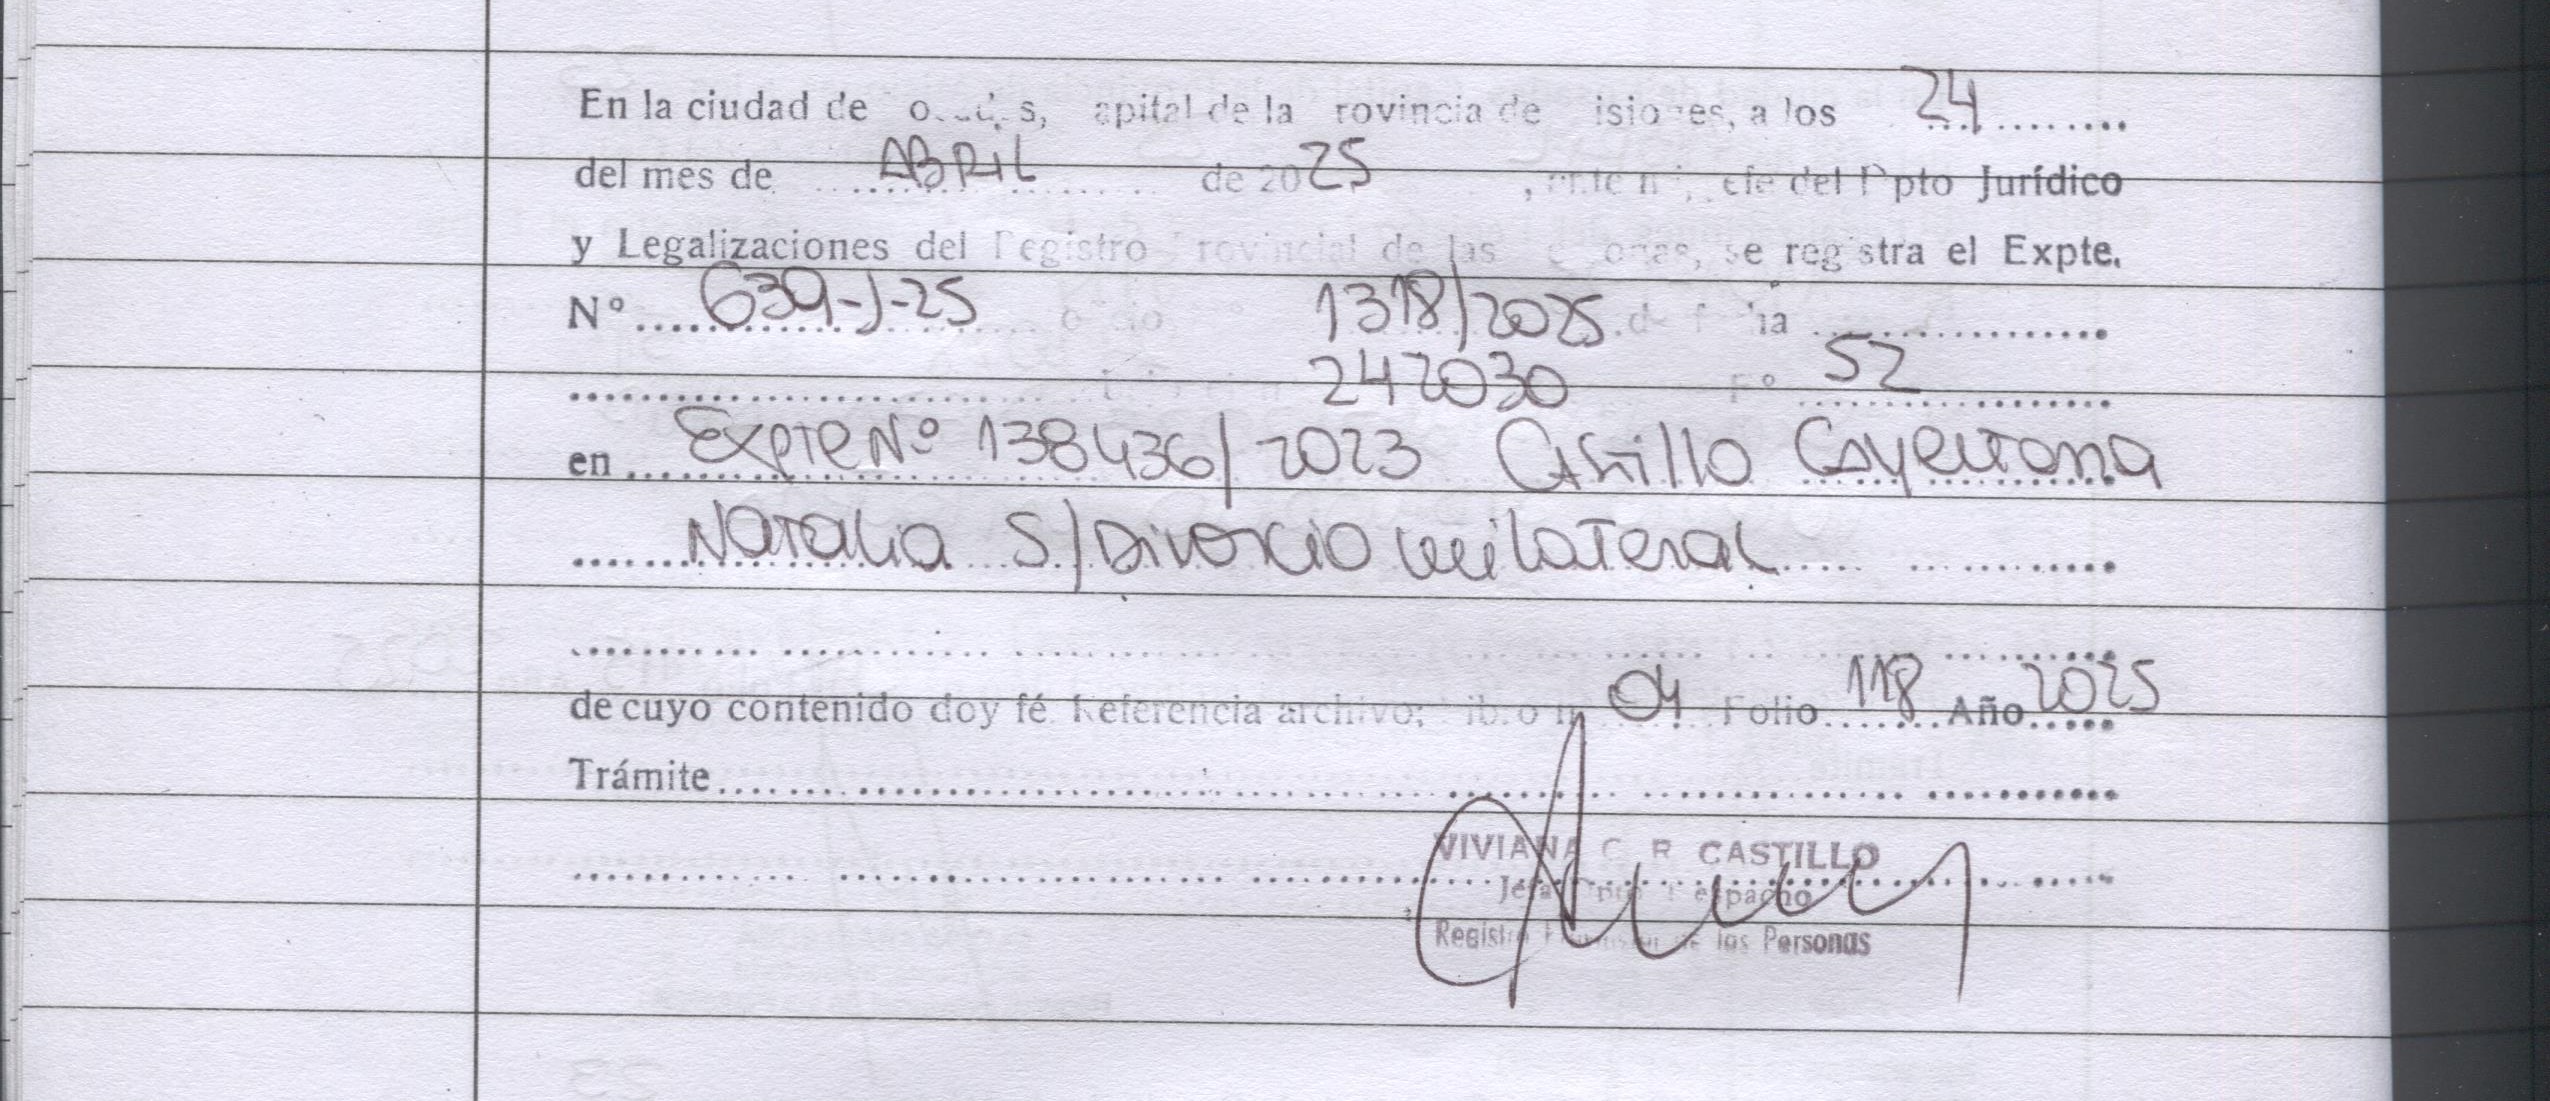 En la ciudad de Posadas, Capital de la Provincia de Misiones, a los 24
del mes de ABRIL de 2025, ante mi, Jefe del Dpto Jurídico
y Legalizaciones del Registro Provincial de las Personas, se registra el Expte.
Nº 639-J-25 1318/2025 de
242030 Fº 52
en Expte Nº 138436/2023 Castillo Cayetana
Natalia S/Divorcio unilateral
de cuyo contenido doy fé Referencia archivo: Libro nº 04 Folio 118 Año 2025
Trámite
VIVIANA C. R. CASTILLO
Jefa Dpto Despacho
Registro Provincial de las Personas